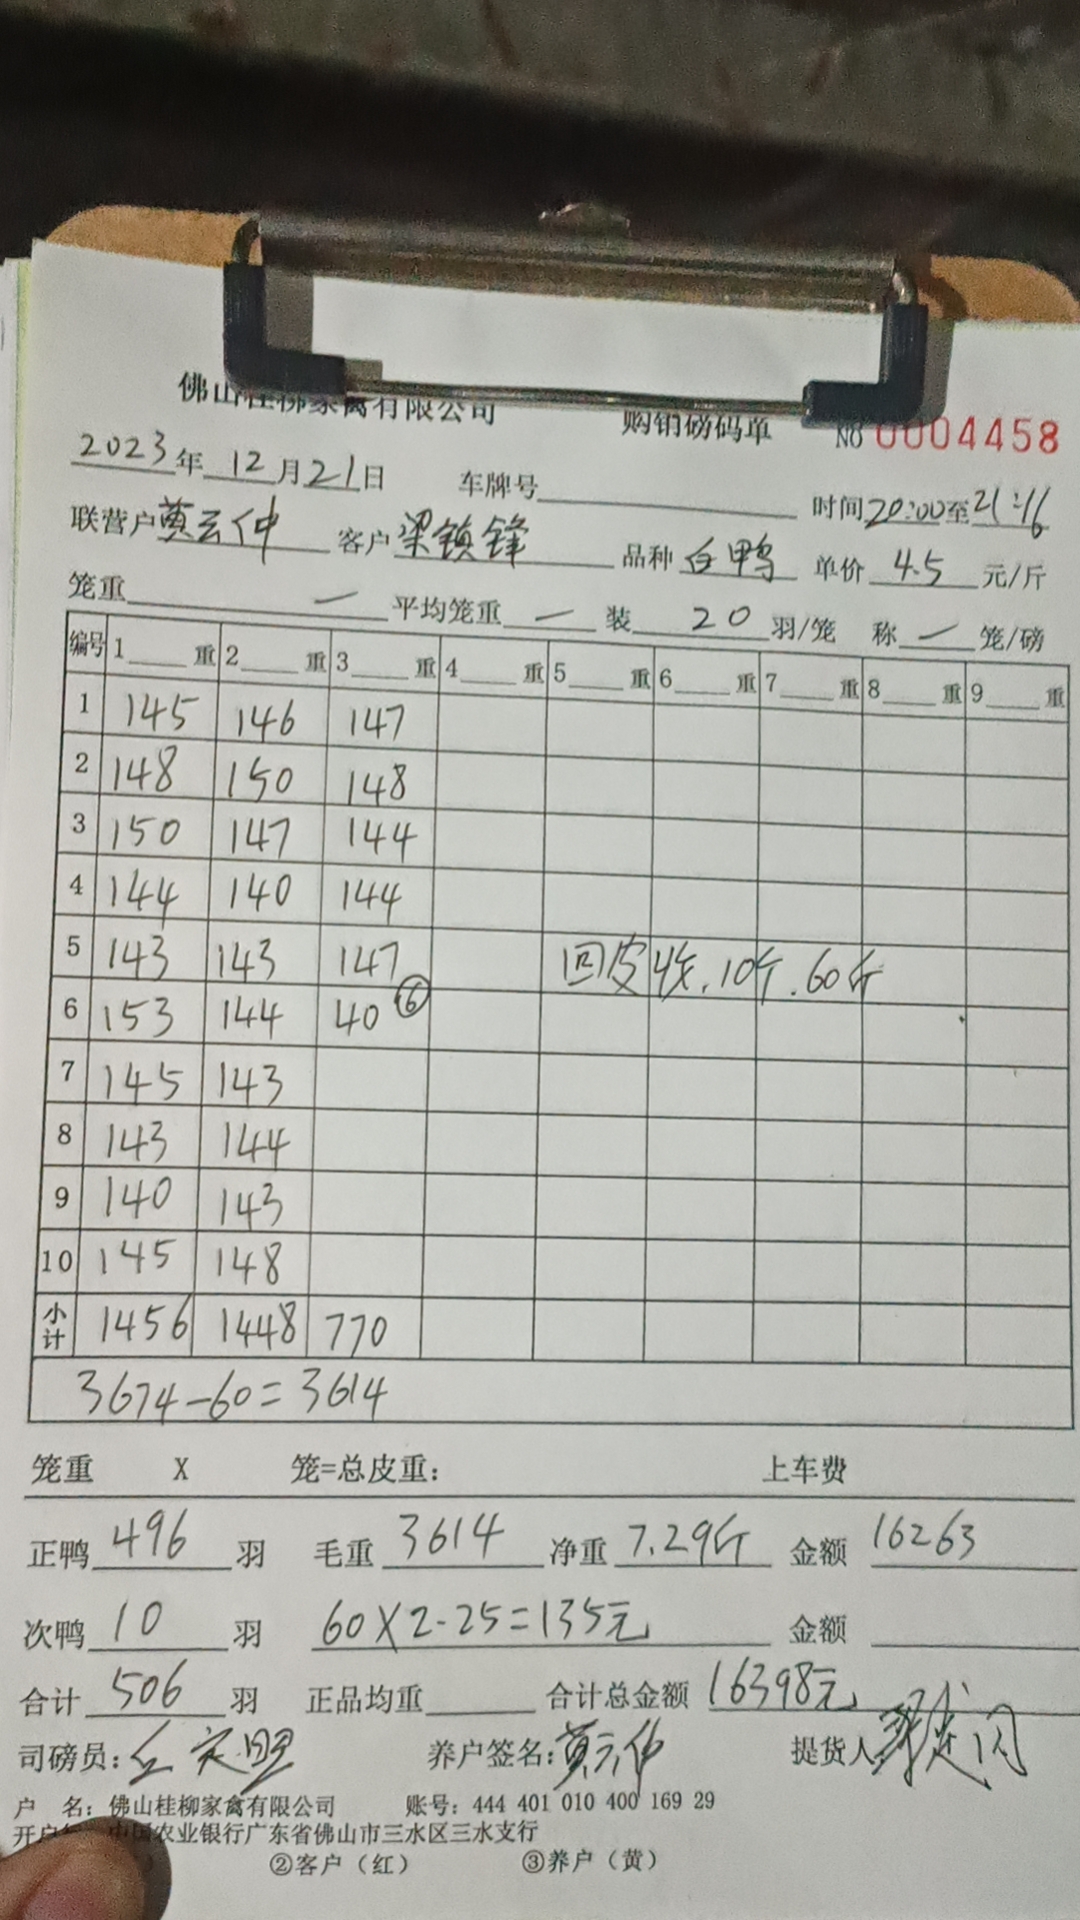 佛山桂柳家禽有限公司 购销磅码单 No 0004458
2023年 12月21日 车牌号 时间20:00至21:16
联营户黄云仲 客户梁镇锋 品种白鸭 单价4.5元/斤
笼重 — 平均笼重 — 装 20 羽/笼 称 — 笼/磅
编号 1 重 2 重 3 重 4 重 5 重 6 重 7 重 8 重 9 重
1 145 146 147
2 148 150 148
3 150 147 144
4 144 140 144
5 143 143 147 回皮 10斤.60斤
6 153 144 40 ⑥
7 145 143
8 143 144
9 140 143
10 145 148
小计 1456 1448 770
3674-60=3614
笼重 X 笼=总皮重： 上车费
正鸭 496 羽 毛重 3614 净重 7.29斤 金额 16263
次鸭 10 羽 60X2.25=135元 金额
合计 506 羽 正品均重 合计总金额 16398元
司磅员： 养户签名：黄云仲 提货人
户 名：佛山桂柳家禽有限公司 账号：444 401 010 400 169 29
开户 中国农业银行广东省佛山市三水区三水支行
②客户（红） ③养户（黄）